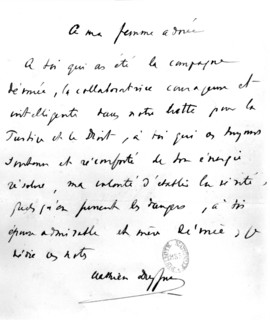 A ma femme adorée
A toi qui as été la compagne
dévouée, la collaboratrice courageuse et
intelligente dans notre lutte pour la
Justice et le Droit, à toi qui as toujours
soutenu et réconforté de ton énergie
résolue, ma volonté d'établir la vérité,
quels qu'en fussent les dangers, à toi
épouse admirable et mère dévouée, je
dédie ces notes
Mathieu Dreyfus